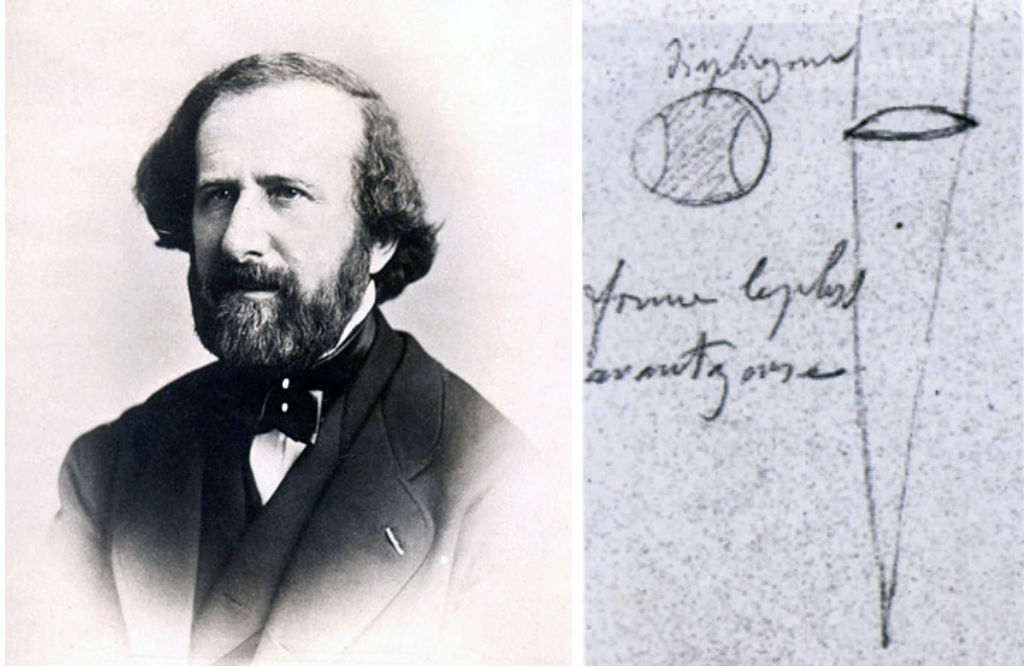 Diaphragme
forme la plus
avantageuse